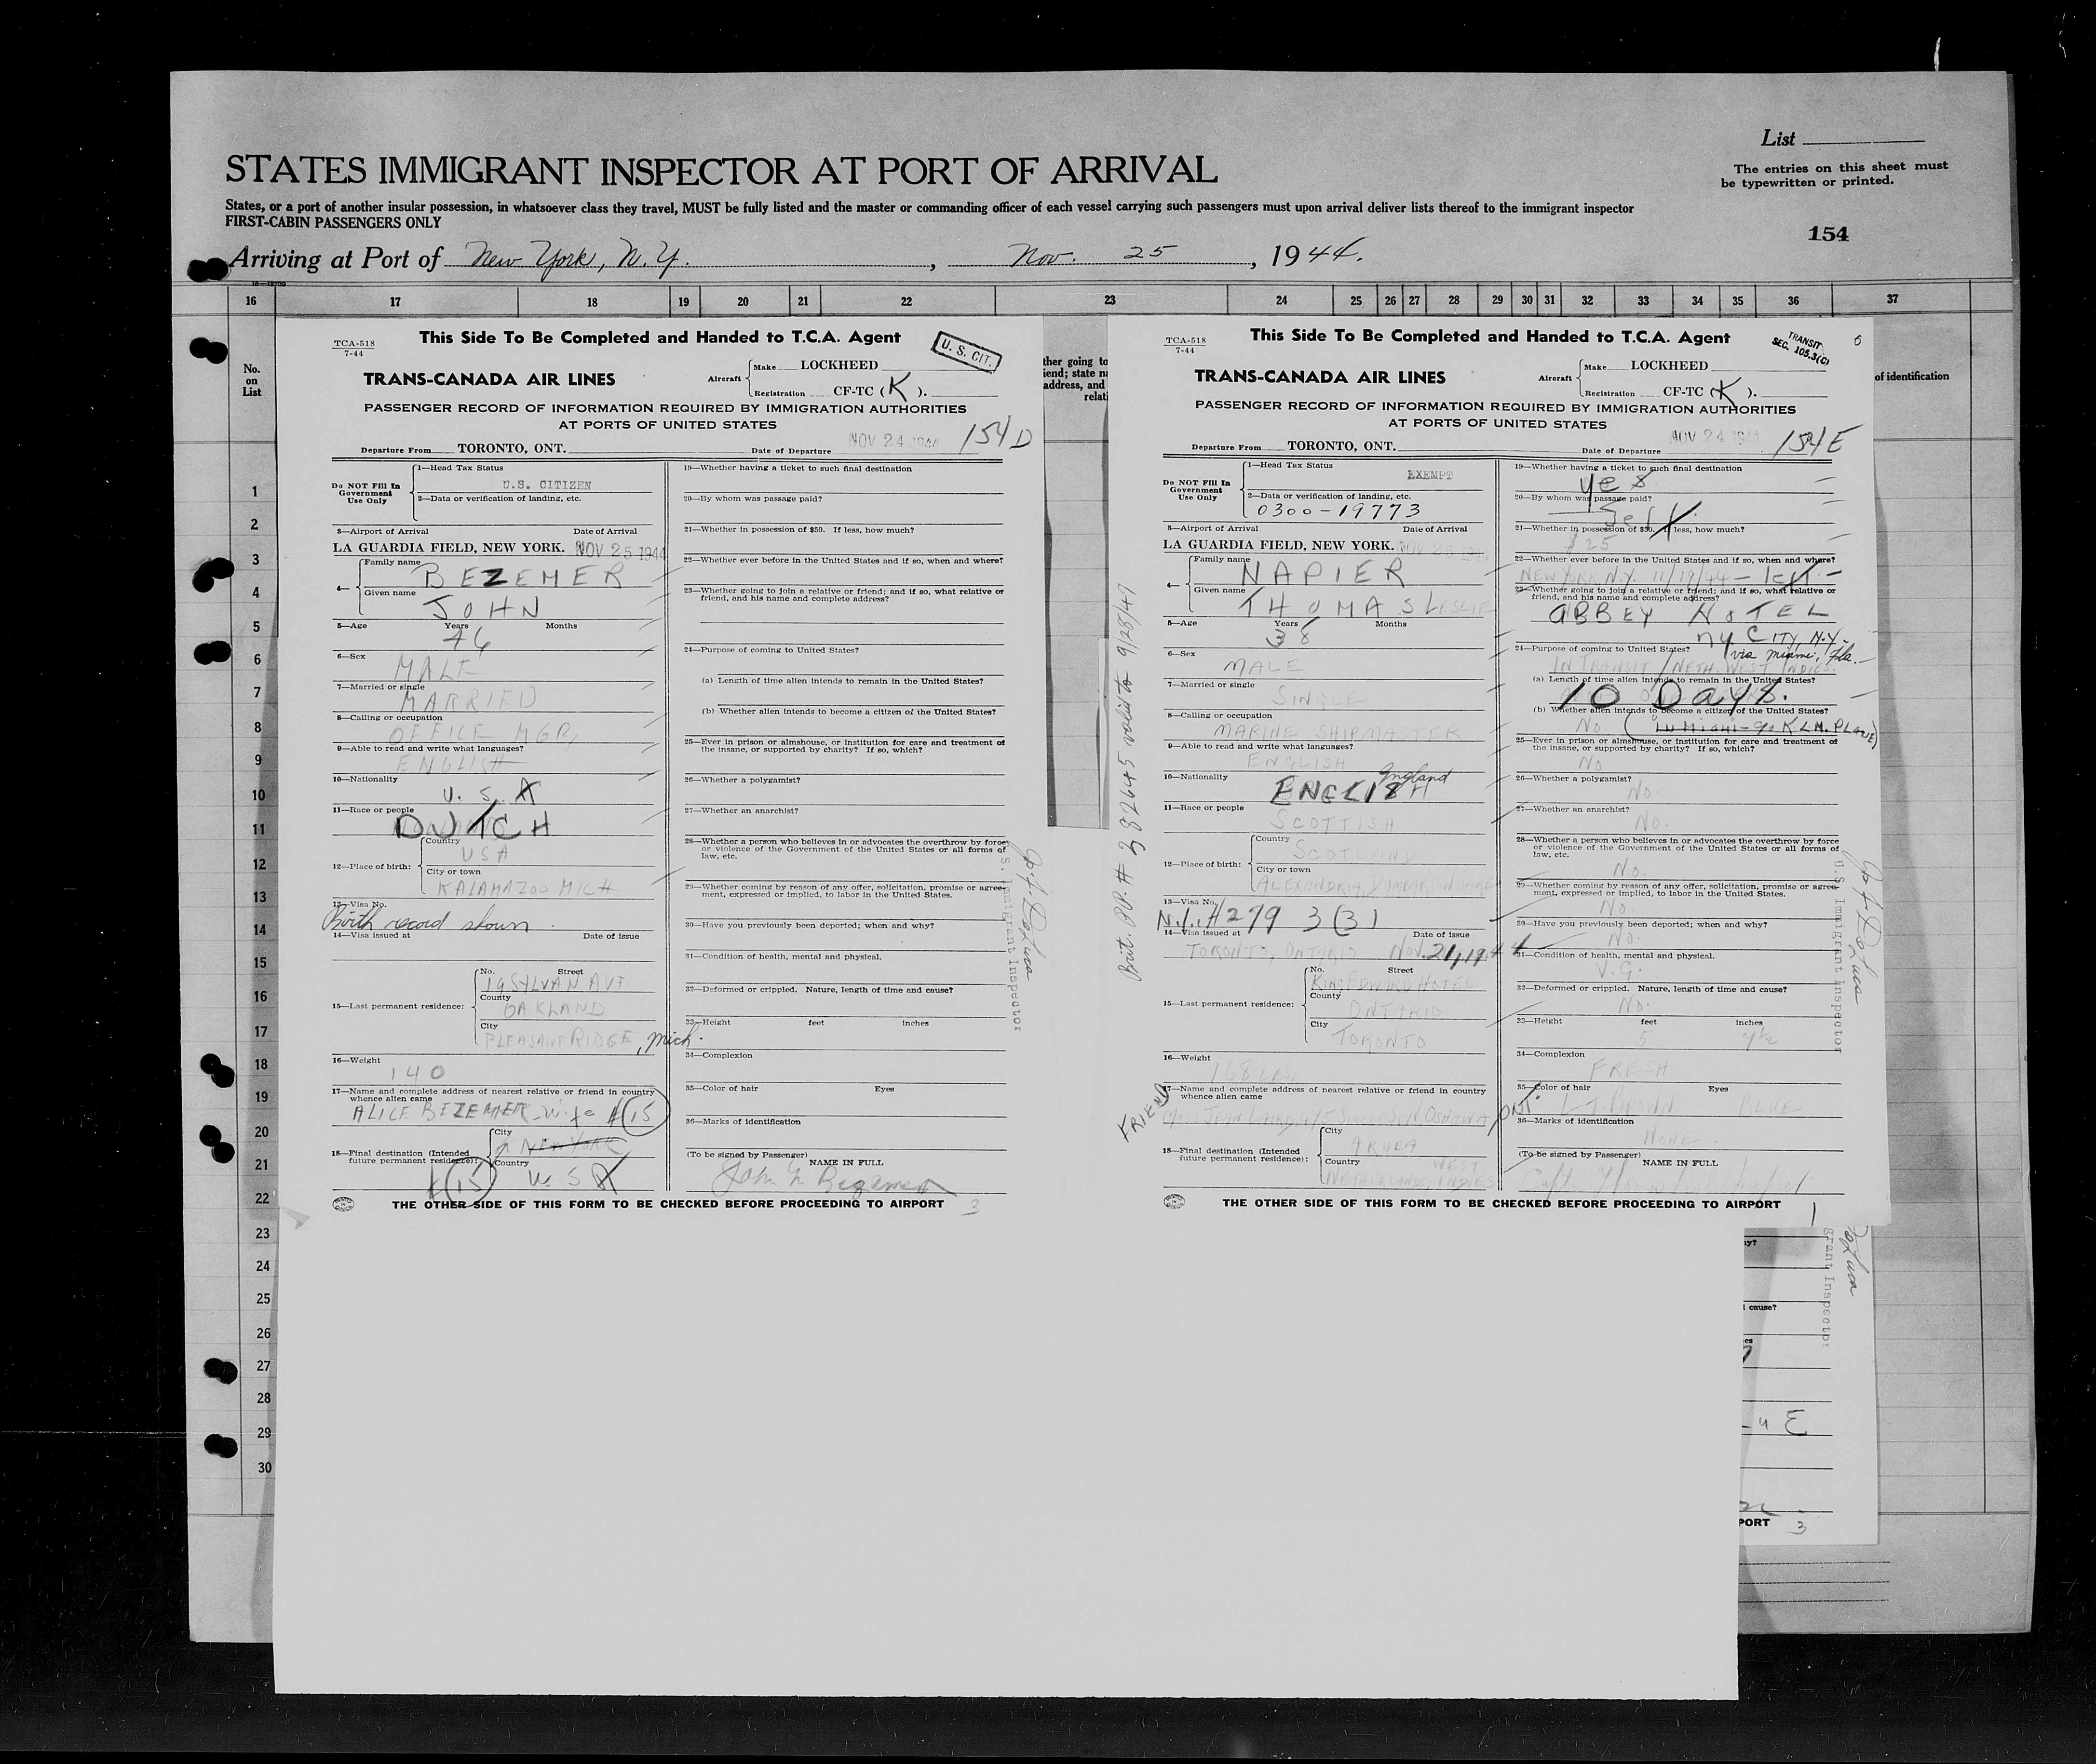 List
The entries on this sheet must
be typewritten or printed.
STATES IMMIGRANT INSPECTOR AT PORT OF ARRIVAL
States, or a port of another insular possession, in whatsoever class they travel, MUST be fully listed and the master or commanding officer of each vessel carrying such passengers must upon arrival deliver lists thereof to the immigrant inspector
FIRST-CABIN PASSENGERS ONLY
154
Arriving at Port of New York, N.Y. , Nov. 25 , 1944.
16 17 18 19 20 21 22 23 24 25 26 27 28 29 30 31 32 33 34 35 36 37
No.
on
List
1
2
3
4
5
6
7
8
9
10
11
12
13
14
15
16
17
18
19
20
21
22
23
24
25
26
27
28
29
30
This Side To Be Completed and Handed to T.C.A. Agent
TCA-518
7-44
U. S. CIT.
TRANS-CANADA AIR LINES
Aircraft
Make LOCKHEED
Registration CF-TC (K).
PASSENGER RECORD OF INFORMATION REQUIRED BY IMMIGRATION AUTHORITIES
AT PORTS OF UNITED STATES
NOV 24 1944 154 D
Departure From TORONTO, ONT. Date of Departure
Do NOT Fill In
Government
Use Only
1—Head Tax Status
U.S. CITIZEN
2—Data or verification of landing, etc.
3—Airport of Arrival Date of Arrival
LA GUARDIA FIELD, NEW YORK. NOV 25 1944
4— Family name
BEZEMER
Given name
JOHN
5—Age Years Months
46
6—Sex
MALE
7—Married or single
MARRIED
8—Calling or occupation
OFFICE MGR,
9—Able to read and write what languages?
ENGLISH
10—Nationality
U.S.A
11—Race or people
DUTCH
12—Place of birth:
Country
USA
City or town
KALAMAZOO MICH
13—Visa No.
Birth record shown
14—Visa issued at Date of issue
15—Last permanent residence:
No. Street
19 SYLVAN AVE
County
OAKLAND
City
PLEASANT RIDGE, Mich.
16—Weight
140
17—Name and complete address of nearest relative or friend in country
whence alien came
ALICE BEZEMER - wife #(15)
18—Final destination (Intended
future permanent residence):
City
NEW YORK
Country
#(15) U.S.A
19—Whether having a ticket to such final destination
20—By whom was passage paid?
21—Whether in possession of $50. If less, how much?
22—Whether ever before in the United States and if so, when and where?
23—Whether going to join a relative or friend; and if so, what relative or
friend, and his name and complete address?
24—Purpose of coming to United States?
(a) Length of time alien intends to remain in the United States?
(b) Whether alien intends to become a citizen of the United States?
25—Ever in prison or almshouse, or institution for care and treatment of
the insane, or supported by charity? If so, which?
26—Whether a polygamist?
27—Whether an anarchist?
28—Whether a person who believes in or advocates the overthrow by force
or violence of the Government of the United States or all forms of
law, etc.
29—Whether coming by reason of any offer, solicitation, promise or agree-
ment, expressed or implied, to labor in the United States.
30—Have you previously been deported; when and why?
31—Condition of health, mental and physical.
32—Deformed or crippled. Nature, length of time and cause?
33—Height feet inches
34—Complexion
35—Color of hair Eyes
36—Marks of identification
(To be signed by Passenger)
NAME IN FULL
THE OTHER SIDE OF THIS FORM TO BE CHECKED BEFORE PROCEEDING TO AIRPORT 3
S. Immigrant Inspector
ther going to
iend; state na
address, and
relati
This Side To Be Completed and Handed to T.C.A. Agent
TCA-518
7-44
TRANSIT
SEC. 105.3(C)
6
TRANS-CANADA AIR LINES
Aircraft
Make LOCKHEED
Registration CF-TC (K).
PASSENGER RECORD OF INFORMATION REQUIRED BY IMMIGRATION AUTHORITIES
AT PORTS OF UNITED STATES
NOV 24 1944 154 E
Departure From TORONTO, ONT. Date of Departure
Do NOT Fill In
Government
Use Only
1—Head Tax Status
EXEMPT
2—Data or verification of landing, etc.
0300-19773
3—Airport of Arrival Date of Arrival
LA GUARDIA FIELD, NEW YORK. NOV 25 1944
4— Family name
NAPIER
Given name
THOMAS LESLIE
5—Age Years Months
38
6—Sex
MALE
7—Married or single
SINGLE
8—Calling or occupation
MARINE SHIPMASTER
9—Able to read and write what languages?
ENGLISH
10—Nationality
ENGLISH England
11—Race or people
SCOTTISH
12—Place of birth:
Country
SCOTLAND
City or town
ALEXANDRIA, DUMBARTONSHIRE
13—Visa No.
N.I. #279 3(3)
14—Visa issued at Date of issue
TORONTO, ONTARIO NOV. 21, 1944
15—Last permanent residence:
No. Street
KING EDWARD HOTEL
County
ONTARIO
City
TORONTO
16—Weight
168 LBS.
FRIEND
17—Name and complete address of nearest relative or friend in country
whence alien came
MISS JEAN LAIRD OSHAWA, ONT.
18—Final destination (Intended
future permanent residence):
City
ARUBA
Country
NETHERLANDS WEST INDIES
19—Whether having a ticket to such final destination
Yes
20—By whom was passage paid?
Self
21—Whether in possession of $50. If less, how much?
$25
22—Whether ever before in the United States and if so, when and where?
NEW YORK N.Y. 11/19/44 - left -
23—Whether going to join a relative or friend; and if so, what relative or
friend, and his name and complete address?
ABBEY HOTEL
NY CITY N.Y.
24—Purpose of coming to United States? via Miami, Fla.
IN TRANSIT / NETH. WEST INDIES
(a) Length of time alien intends to remain in the United States?
10 Days.
(b) Whether alien intends to become a citizen of the United States?
No (in Miami - go KLM. PLANE)
25—Ever in prison or almshouse, or institution for care and treatment of
the insane, or supported by charity? If so, which?
No
26—Whether a polygamist?
No.
27—Whether an anarchist?
No.
28—Whether a person who believes in or advocates the overthrow by force
or violence of the Government of the United States or all forms of
law, etc.
No.
29—Whether coming by reason of any offer, solicitation, promise or agree-
ment, expressed or implied, to labor in the United States.
No
30—Have you previously been deported; when and why?
No.
31—Condition of health, mental and physical.
V.G.
32—Deformed or crippled. Nature, length of time and cause?
No.
33—Height feet inches
5
34—Complexion
FRESH
35—Color of hair Eyes
LT. BROWN BLUE
36—Marks of identification
NONE.
(To be signed by Passenger)
NAME IN FULL
THE OTHER SIDE OF THIS FORM TO BE CHECKED BEFORE PROCEEDING TO AIRPORT 1
Brit. PP. # 282645 valid to 9/28/47
U.S Immigrant Inspector
of identification
ny?
grant Inspector
cause?
PORT 3